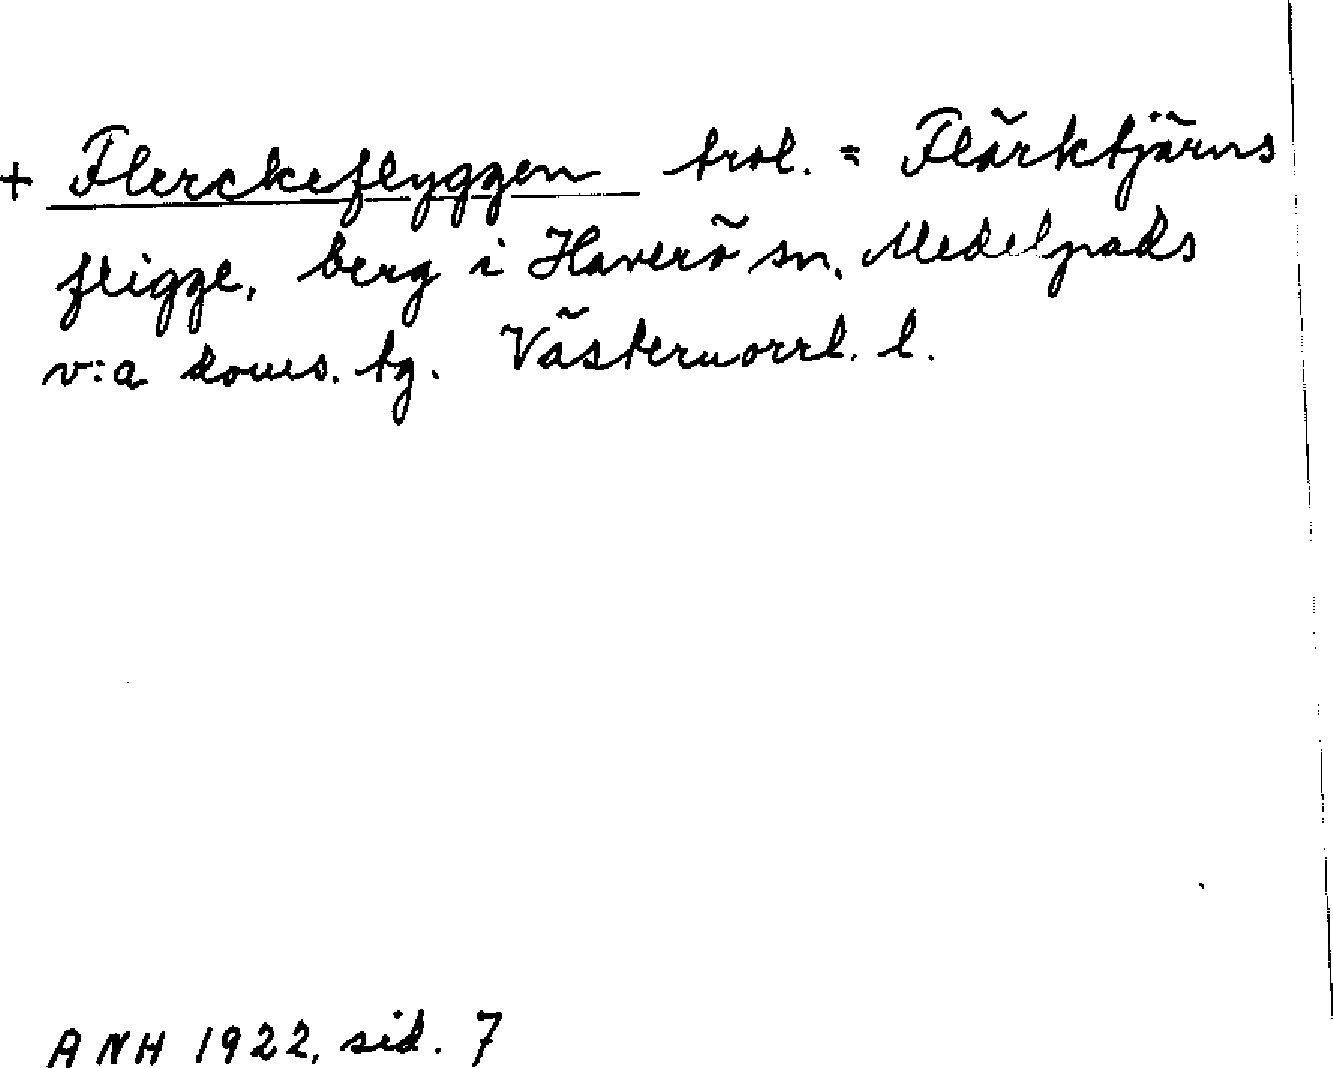 + Flerckeflyggen trol. = Flärktjärns
fligge, berg i Haverö sn, Medelpads
v:a doms. tg. Västernorrl. l.
ANH 1922, sid. 7